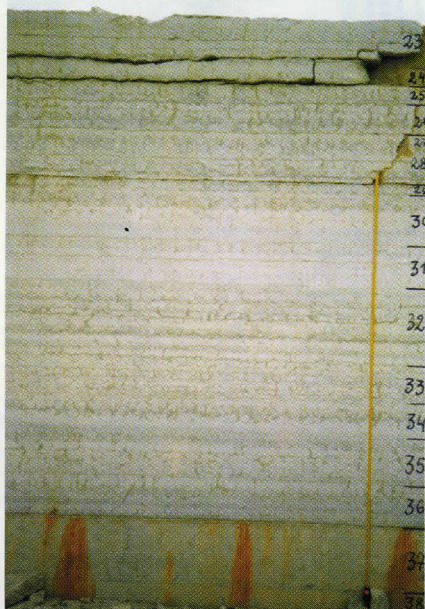 23
24
25
26
27
28
29
30
31
32
33
34
35
36
37
38